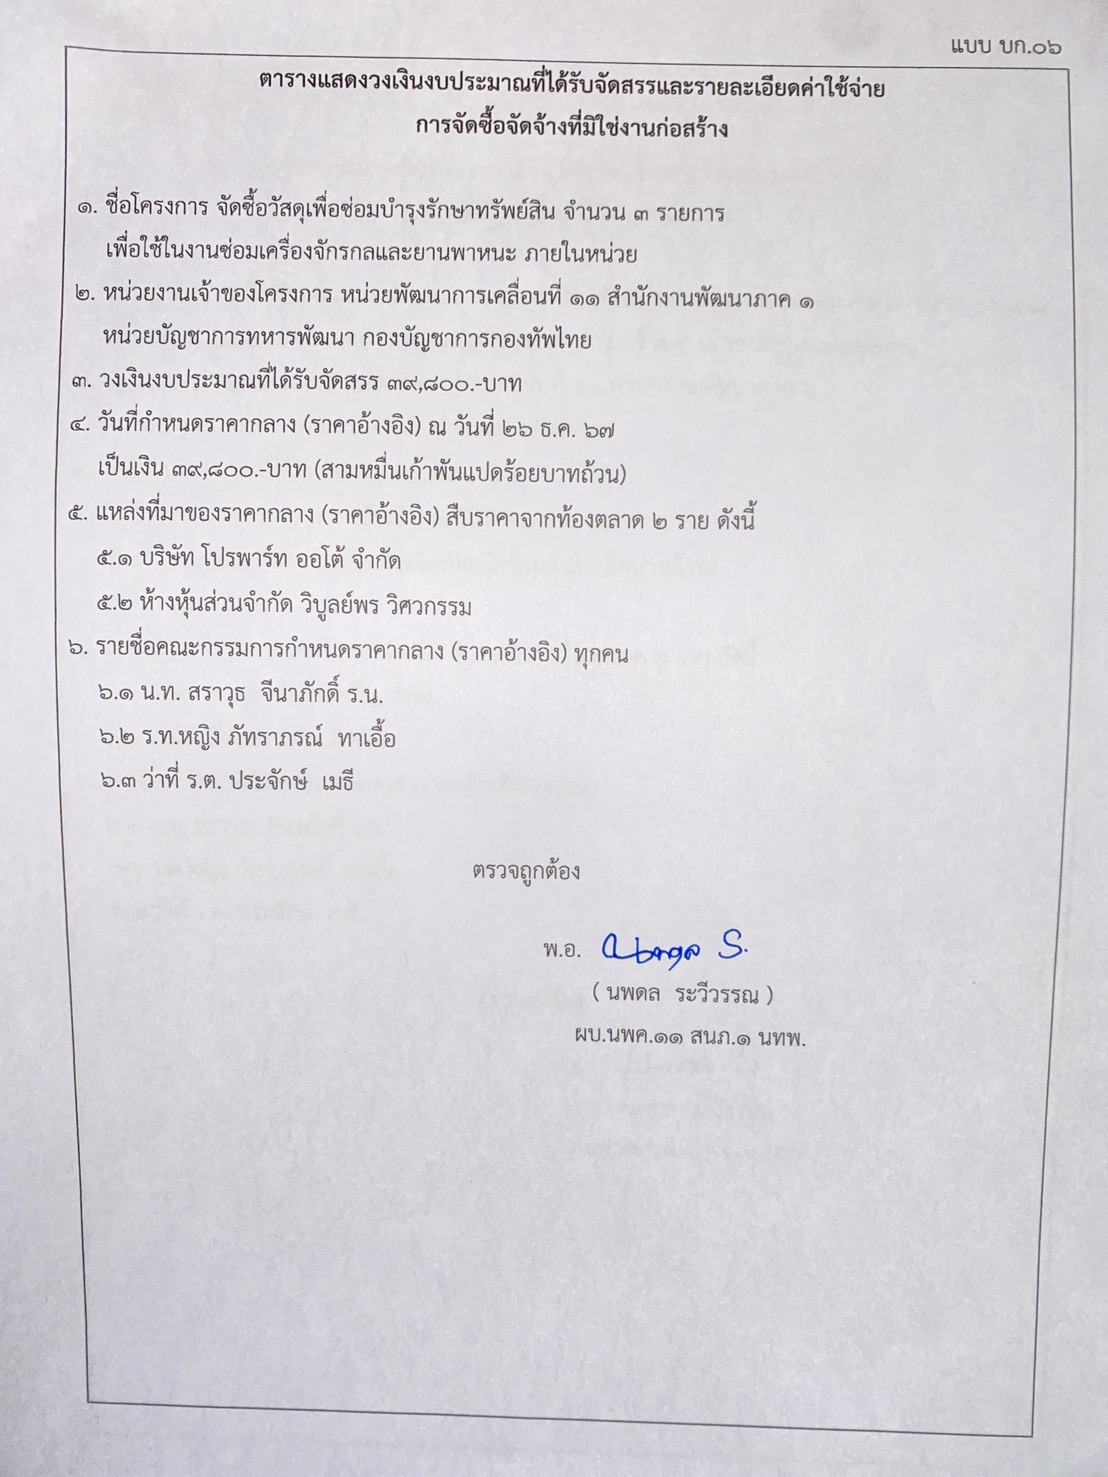 แบบ บก.๐๖
ตารางแสดงวงเงินงบประมาณที่ได้รับจัดสรรและรายละเอียดค่าใช้จ่าย
การจัดซื้อจัดจ้างที่มิใช่งานก่อสร้าง
๑. ชื่อโครงการ จัดซื้อวัสดุเพื่อซ่อมบำรุงรักษาทรัพย์สิน จำนวน ๓ รายการ
เพื่อใช้ในงานซ่อมเครื่องจักรกลและยานพาหนะ ภายในหน่วย
๒. หน่วยงานเจ้าของโครงการ หน่วยพัฒนาการเคลื่อนที่ ๑๑ สำนักงานพัฒนาภาค ๑
หน่วยบัญชาการทหารพัฒนา กองบัญชาการกองทัพไทย
๓. วงเงินงบประมาณที่ได้รับจัดสรร ๓๙,๘๐๐.-บาท
๔. วันที่กำหนดราคากลาง (ราคาอ้างอิง) ณ วันที่ ๒๖ ธ.ค. ๖๗
เป็นเงิน ๓๙,๘๐๐.-บาท (สามหมื่นเก้าพันแปดร้อยบาทถ้วน)
๕. แหล่งที่มาของราคากลาง (ราคาอ้างอิง) สืบราคาจากท้องตลาด ๒ ราย ดังนี้
๕.๑ บริษัท โปรพาร์ท ออโต้ จำกัด
๕.๒ ห้างหุ้นส่วนจำกัด วิบูลย์พร วิศวกรรม
๖. รายชื่อคณะกรรมการกำหนดราคากลาง (ราคาอ้างอิง) ทุกคน
๖.๑ น.ท. สราวุธ จีนาภักดิ์ ร.น.
๖.๒ ร.ท.หญิง ภัทราภรณ์ ทาเอื้อ
๖.๓ ว่าที่ ร.ต. ประจักษ์ เมธี
ตรวจถูกต้อง
พ.อ. นพดล S.
( นพดล ระวีวรรณ )
ผบ.นพค.๑๑ สนภ.๑ นทพ.